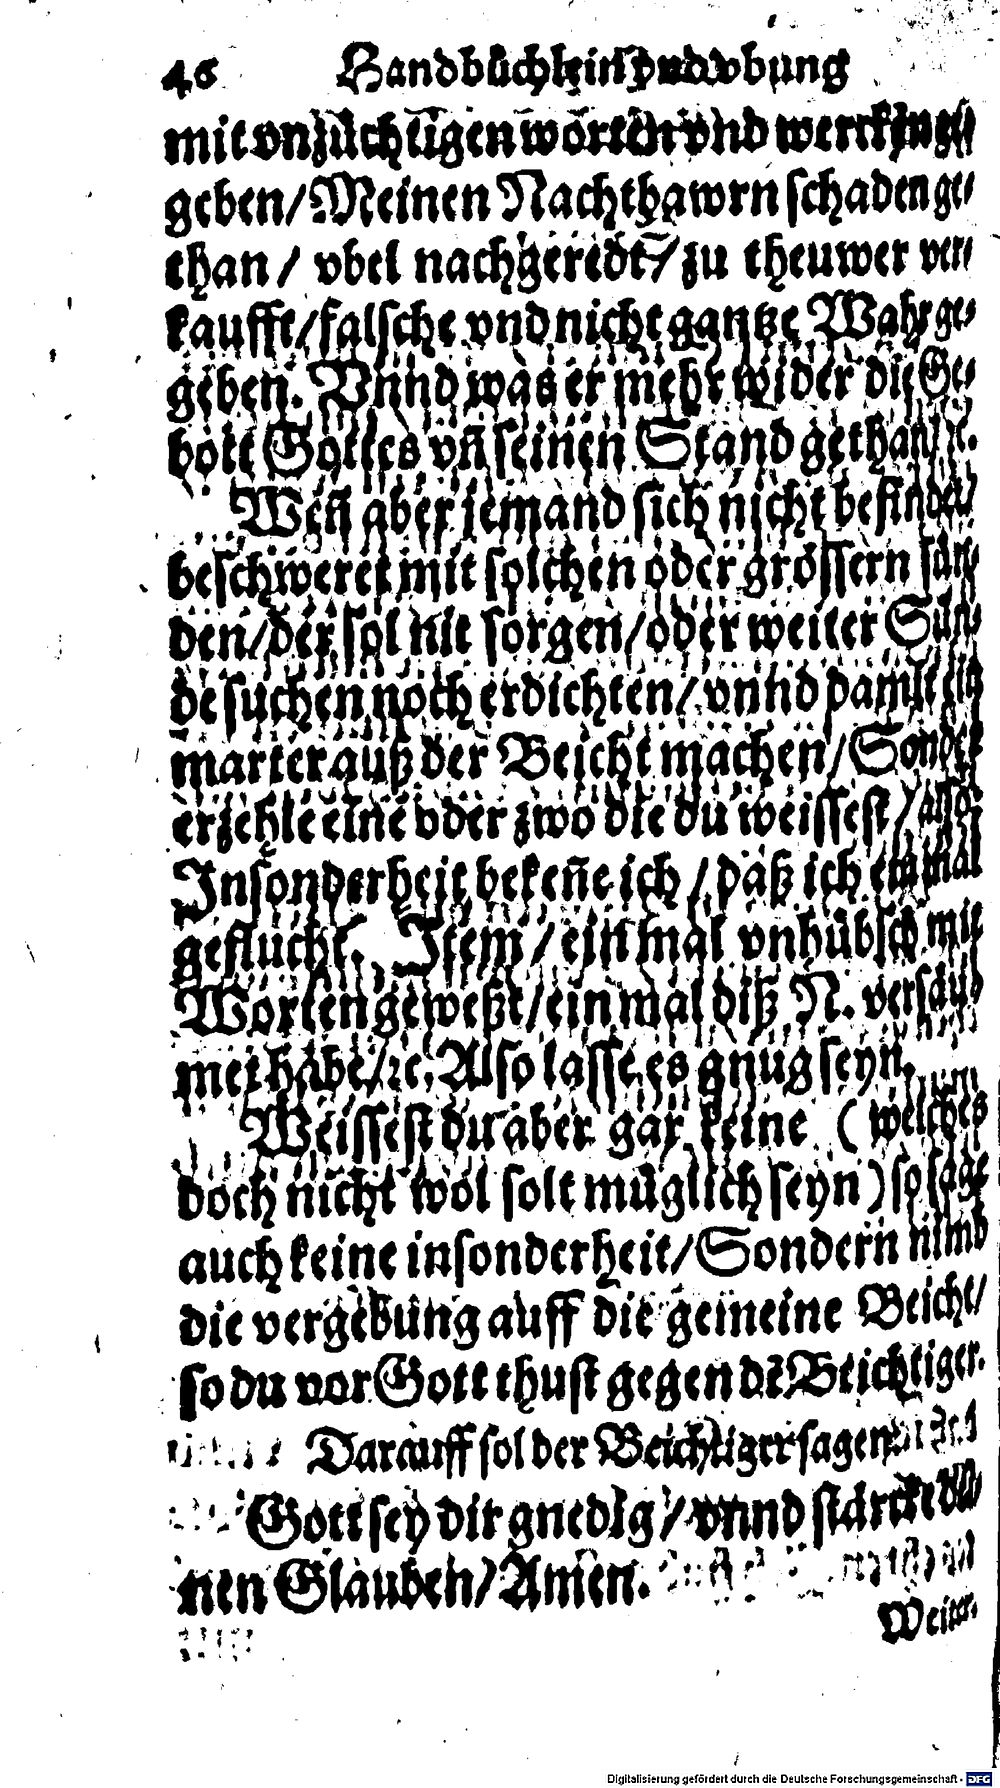 46 Handbüchlein vnd vbung
mit vnzüchtigen worten vnd wercken ge⸗
geben/ Meinen Nachthawrn schaden ge⸗
than/ vbel nachgeredt/ zu theuwer ver⸗
kaufft/ falsche vnd nicht gantze Wahr ge⸗
geben. Vnnd was er mehr wider die Ge⸗
bott Gottes vñ seinen Stand gethan/ ꝛc.
Weñ aber jemand sich nicht befindet/
beschweret mit solchen oder grössern sün⸗
den/ der sol nit sorgen/ oder weiter Sün⸗
de suchen noch erdichten/ vnnd damit ein
marter auß der Beicht machen/ Sonder
erzehle eine oder zwo die du weissest/ also:
Insonderheit bekeñe ich/ daß ich ein mal
geflucht. Item/ ein mal vnhübsch mit
Worten geweßt/ ein mal diß N. versäu⸗
met habe/ ꝛc. Also lasse es gnug seyn.
Weissest du aber gar keine (welches
doch nicht wol solt müglich seyn) so sage
auch keine insonderheit/ Sondern nimb
die vergebung auff die gemeine Beicht/
so du vor Gott thust gegen dē Beichtiger.
Darauff sol der Beichtiger sagen:
Gott sey dir gnedig/ vnnd stärcke dei⸗
nen Glauben/ Amen.
Weiter.
Digitalisierung gefördert durch die Deutsche Forschungsgemeinschaft - DFG